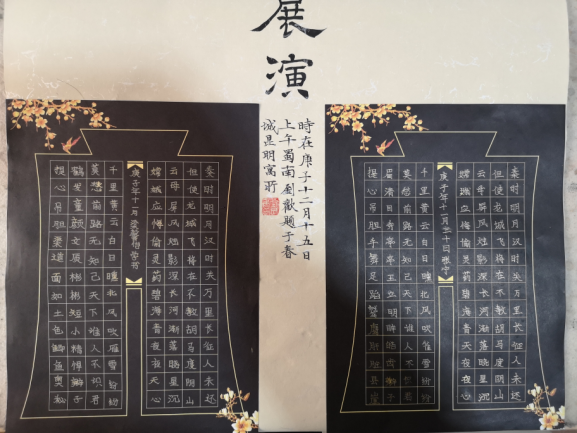 展演
時在庚子十二月十五日
上午蜀南
题于春
城昆明寓所
秦时明月汉时关万里长征人未还
但使龙城飞将在不教胡马度阴山
云母屏风烛影深长河渐落晓星沉
嫦娥应悔偷灵药碧海青天夜夜心
庚子年十一月
千里黄云白日曛北风吹雁雪纷纷
莫愁前路无知己天下谁人不识君
鹤发童颜文质彬彬短小精悍
提心吊胆
面如土色
秦时明月汉时关万里长征人未还
但使龙城飞将在不教胡马度阴山
云母屏风烛影深长河渐落晓星沉
嫦娥应悔偷灵药碧海青天夜夜心
庚子年十一月三十日
千里黄云白日曛北风吹雁雪纷纷
莫愁前路无知己天下谁人不识君
眉清目秀亭亭玉立明眸皓齿
提心吊胆手
足